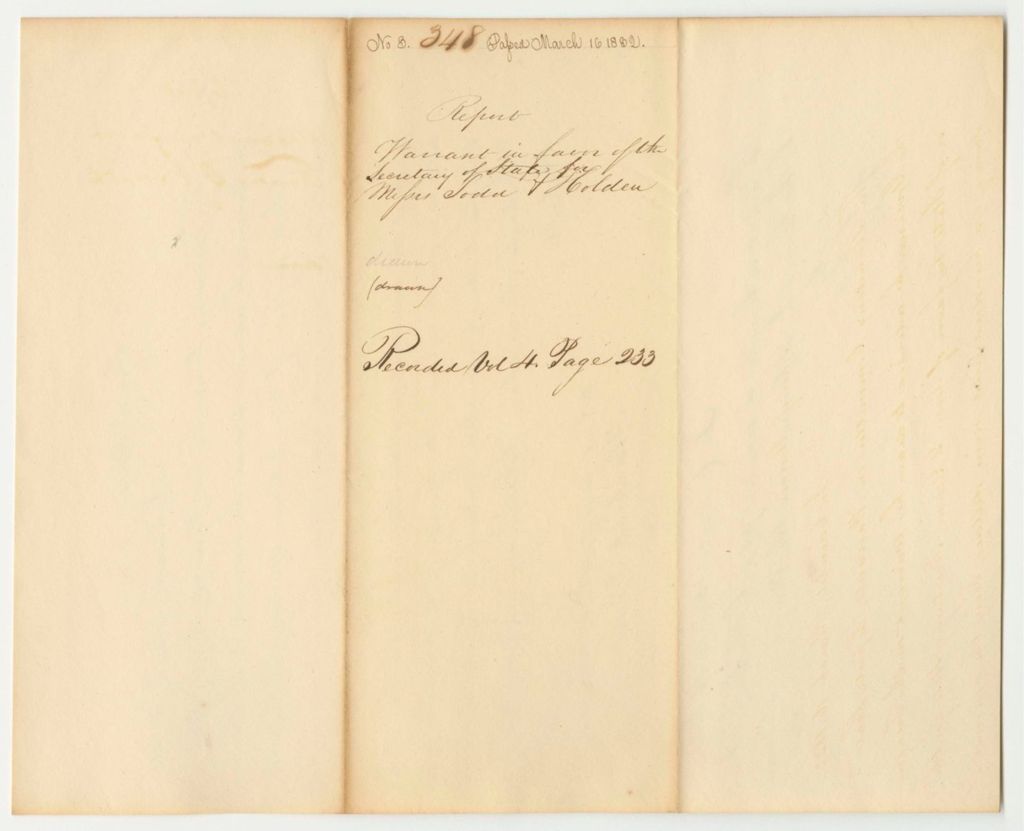 No 3. 348 Passed March 16 1832.
Report
Warrant in favor of the
Secretary of State, for
Messrs Todd & Holden
drawn
(drawn)
Recorded Vol 4. Page 233